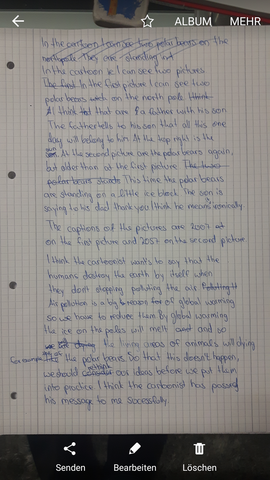 ALBUM MEHR
In the cartoon I can see two polar bears on the
northpole. They are standing
In the cartoon I can see two pictures
The first In the first picture I can see two
polar bears on the north pole. I think
I think that that are a father with his son
The father tells to his son that all this one
day will belong to him. At the top right is the
sun. At the second picture are the polar bears again,
but older than at the first picture. The two
polar bears stands This time the polar bears
are standing on a little ice block. The son is
saying to his dad thank you I think he means ironically
The captions of the pictures are 2007 at
on the first picture and 2057 on the second picture
I think the cartoonist wants to say that the
humans destroy the earth by itself when
they don't stopping polluting the air Polluting it
Air pollution is a big reason for of global warming
so we have to reduce them by global warming
the ice on the poles will melt and so
the living areas of animals will dying
for example the polar bears. So that this doesn't happen,
we should rethink our ideas before we put them
into practice I think the cartoonist has passed
his message to me sucessfully.
Senden Bearbeiten Löschen